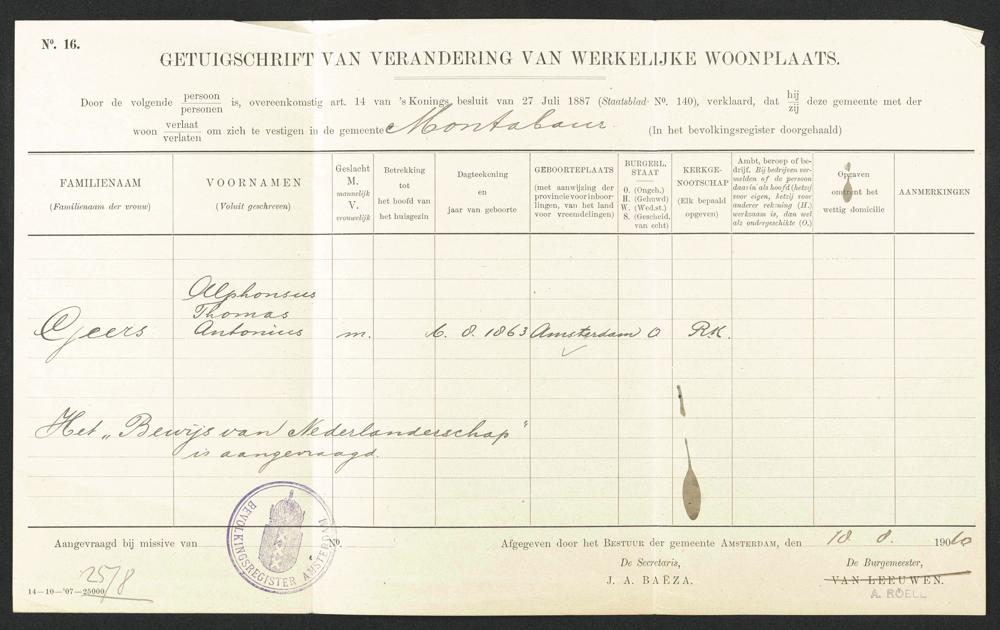 No. 16.
GETUIGSCHRIFT VAN VERANDERING VAN WERKELIJKE WOONPLAATS.
Door de volgende persoon / personen is, overeenkomstig art. 14 van 's Konings besluit van 27 Juli 1887 (Staatsblad No. 140), verklaard, dat hij / zij deze gemeente met der
woon verlaat / verlaten om zich te vestigen in de gemeente Montabaur (In het bevolkingsregister doorgehaald)
FAMILIENAAM
(Familienaam der vrouw)
VOORNAMEN
(Voluit geschreven)
Geslacht
M.
mannelijk
V.
vrouwelijk
Betrekking
tot
het hoofd van
het huisgezin
Dagteekening
en
jaar van geboorte
GEBOORTEPLAATS
(met aanwijzing der
provincie voor inboor-
lingen, van het land
voor vreemdelingen)
BURGERL.
STAAT
O. (Ongeh.)
H. (Gehuwd)
W. (Wed.st.)
S. (Gescheid.
van echt)
KERKGE-
NOOTSCHAP
(Elk bepaald
opgeven)
Ambt, beroep of be-
drijf. Bij bedrijven ver-
melden of de persoon
daarin als hoofd (hetzij
voor eigen, hetzij voor
anderer rekening (H.)
werkzaam is, dan wel
als ondergeschikte (O.)
Opgaven
omtrent het
wettig domicilie
AANMERKINGEN
Alphonsus
Thomas
Geers Antonius m. 6. 8. 1863 Amsterdam O R.K.
Het "Bewijs van Nederlanderschap"
is aangevraagd.
BEVOLKINGSREGISTER AMSTERDAM
Aangevraagd bij missive van No.
Afgegeven door het BESTUUR der gemeente AMSTERDAM, den 18. 8. 1910
De Secretaris,
J. A. BAËZA.
De Burgemeester,
VAN LEEUWEN.
A. RÖELL
25/8
14—10—'07—25000